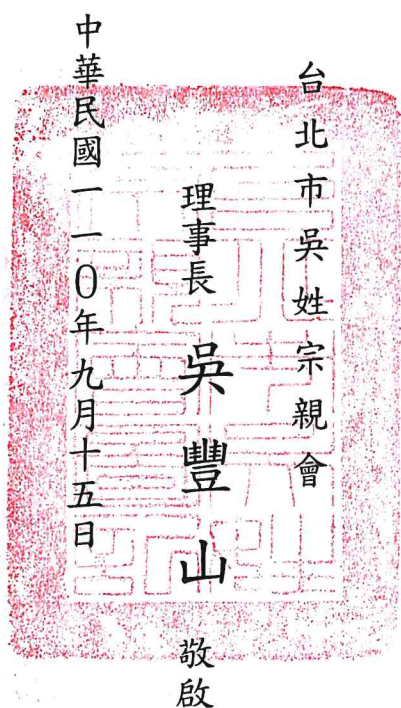 台北市吳姓宗親會
理事長 吳豐山 敬啟
中華民國一一0年九月十五日